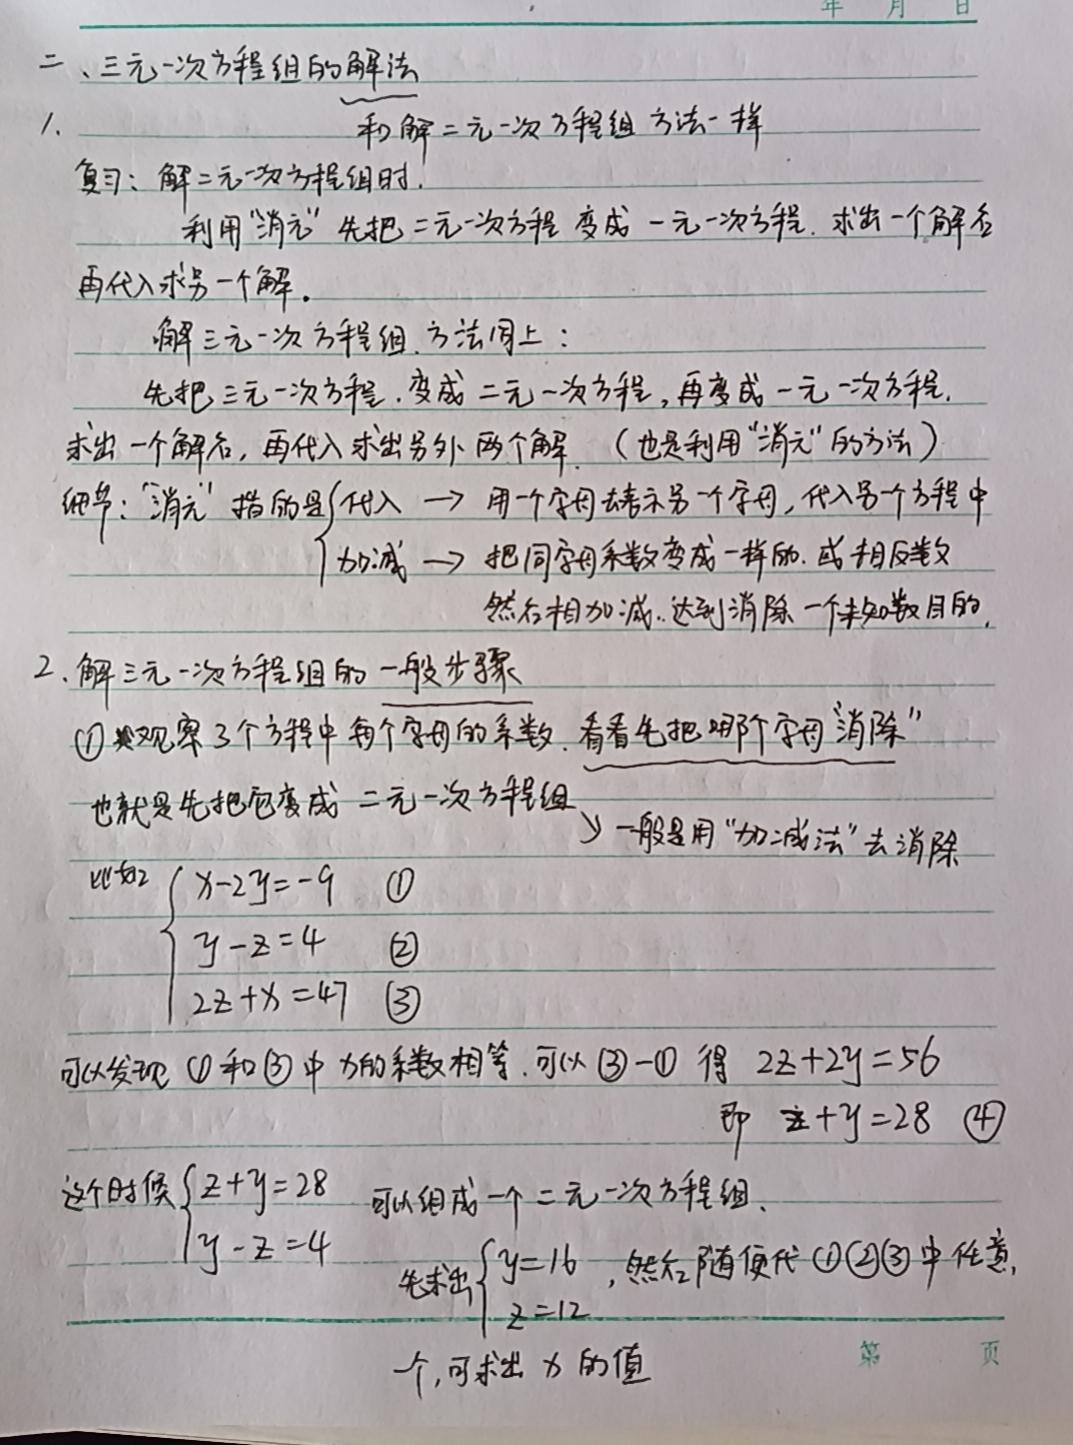 年 月 日
二、三元一次方程组的解法
1. 和解二元一次方程组方法一样
复习：解二元一次方程组时.
利用“消元”先把二元一次方程变成一元一次方程.求出一个解后
再代入求另一个解。
解三元一次方程组.方法同上：
先把三元一次方程.变成二元一次方程,再变成一元一次方程.
求出一个解后,再代入求出另外两个解.（也是利用“消元”的方法）
细节：“消元”指的是{代入 → 用一个字母去表示另一个字母,代入另一个方程中
加减 → 把同字母系数变成一样的.或相反数
然后相加减..达到消除一个未知数目的.
2、解三元一次方程组的一般步骤
①观察3个方程中每个字母的系数.看看先把哪个字母“消除”
也就是先把它变成二元一次方程组
↘一般是用“加减法”去消除
比如 { x-2y=-9 ①
y-z=4 ②
2z+x=47 ③
可以发现①和③中x的系数相等.可以③-①得 2z+2y=56
即 z+y=28 ④
这个时候 { z+y=28 可以组成一个二元一次方程组.
y-z=4
先求出 { y=16 ,然后随便代①②③中任意,
z=12
一个,可求出x的值
第 页